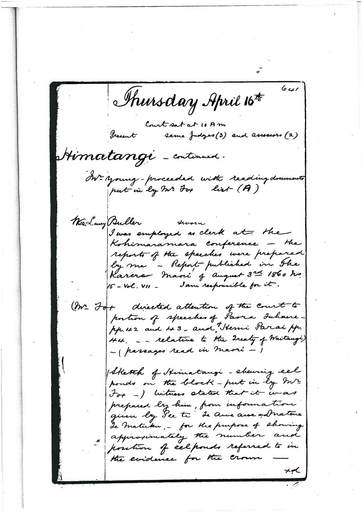 641
Thursday April 16th
Court sat at 10 Am
Present same Judges (3) and assessors (2)
Himatangi - continued.
Mr Young - proceeded with reading documents
put in by Mr Fox list (A)
Buller sworn
I was employed as clerk at the
Kohimaramara conference - the
reports of the speeches were prepared
by me - Report published in the
Karere Maori of August 3rd 1860 No
15 - Vol. VII - I am responsible for it.
(Mr Fox directed attention of the Court to
portion of speeches of
pp. 42 and 43 - and Hemi Parai pp.
44. - - relative to the Treaty of Waitangi)
- (passages read in Maori -)
(Sketch of Himatangi - shewing eel
ponds on the block - put in by Mr
Fox -) Witness stated that it was
prepared by him from information
given by
- for the purpose of showing
approximately the number and
position of eelponds referred to in
the evidence for the crown -